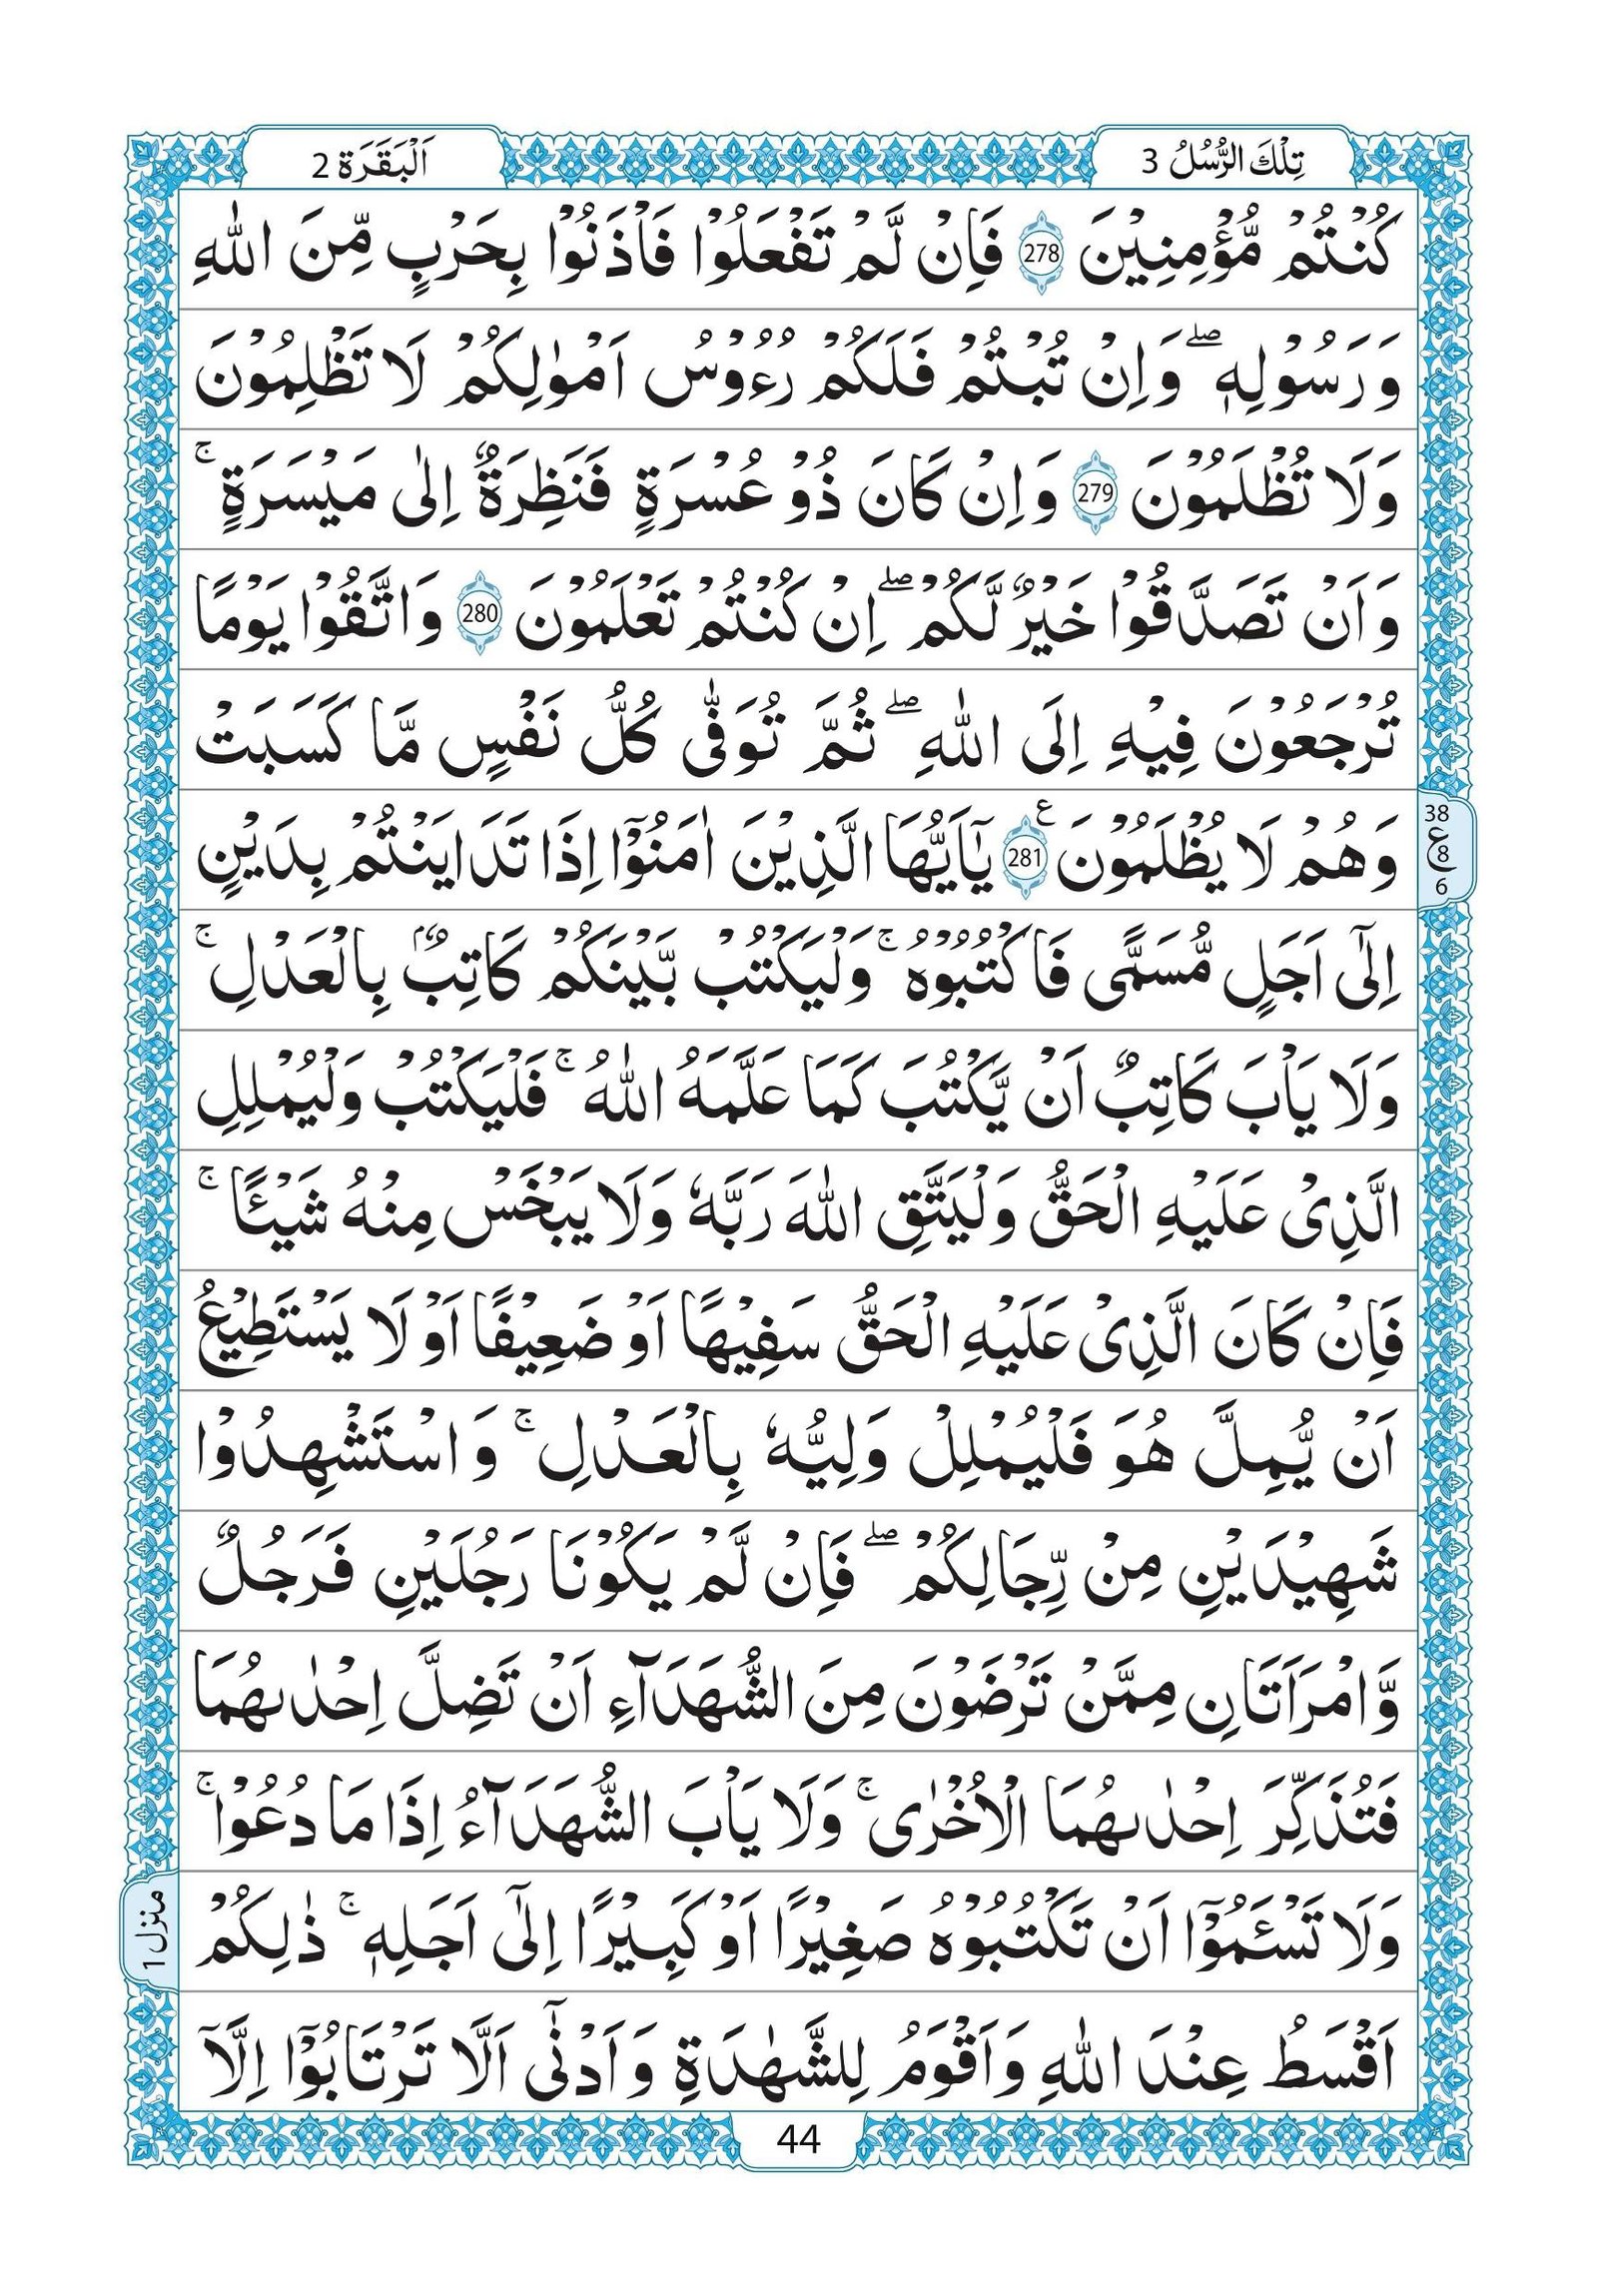 تِلْكَ الرُّسُلُ 3
اَلْبَقَرَة 2
كُنْتُمْ مُّؤْمِنِيْنَ 278 فَاِنْ لَّمْ تَفْعَلُوْا فَاْذَنُوْا بِحَرْبٍ مِّنَ اللّٰهِ
وَرَسُوْلِهٖ ۖ وَاِنْ تُبْتُمْ فَلَكُمْ رُءُوْسُ اَمْوٰلِكُمْ لَا تَظْلِمُوْنَ
وَلَا تُظْلَمُوْنَ 279 وَاِنْ كَانَ ذُوْ عُسْرَةٍ فَنَظِرَةٌ اِلٰى مَيْسَرَةٍ ۚ
وَاَنْ تَصَدَّقُوْا خَيْرٌ لَّكُمْ ۖ اِنْ كُنْتُمْ تَعْلَمُوْنَ 280 وَاتَّقُوْا يَوْمًا
تُرْجَعُوْنَ فِيْهِ اِلَى اللّٰهِ ۖ ثُمَّ تُوَفّٰى كُلُّ نَفْسٍ مَّا كَسَبَتْ
وَهُمْ لَا يُظْلَمُوْنَ ع 281 يٰٓاَيُّهَا الَّذِيْنَ اٰمَنُوْٓا اِذَا تَدَايَنْتُمْ بِدَيْنٍ
38
ع 8
6
اِلٰٓى اَجَلٍ مُّسَمًّى فَاكْتُبُوْهُ ۚ وَلْيَكْتُبْ بَّيْنَكُمْ كَاتِبٌۢ بِالْعَدْلِ ۚ
وَلَا يَاْبَ كَاتِبٌ اَنْ يَّكْتُبَ كَمَا عَلَّمَهُ اللّٰهُ ۚ فَلْيَكْتُبْ وَلْيُمْلِلِ
الَّذِيْ عَلَيْهِ الْحَقُّ وَلْيَتَّقِ اللّٰهَ رَبَّهٗ وَلَا يَبْخَسْ مِنْهُ شَيْـًٔا ۚ
فَاِنْ كَانَ الَّذِيْ عَلَيْهِ الْحَقُّ سَفِيْهًا اَوْ ضَعِيْفًا اَوْ لَا يَسْتَطِيْعُ
اَنْ يُّمِلَّ هُوَ فَلْيُمْلِلْ وَلِيُّهٗ بِالْعَدْلِ ۚ وَاسْتَشْهِدُوْا
شَهِيْدَيْنِ مِنْ رِّجَالِكُمْ ۖ فَاِنْ لَّمْ يَكُوْنَا رَجُلَيْنِ فَرَجُلٌ
وَّامْرَاَتَانِ مِمَّنْ تَرْضَوْنَ مِنَ الشُّهَدَآءِ اَنْ تَضِلَّ اِحْدٰىهُمَا
فَتُذَكِّرَ اِحْدٰىهُمَا الْاُخْرٰى ۚ وَلَا يَاْبَ الشُّهَدَآءُ اِذَا مَا دُعُوْا ۚ
وَلَا تَسْـَٔمُوْٓا اَنْ تَكْتُبُوْهُ صَغِيْرًا اَوْ كَبِيْرًا اِلٰٓى اَجَلِهٖ ۚ ذٰلِكُمْ
منزل 1
اَقْسَطُ عِنْدَ اللّٰهِ وَاَقْوَمُ لِلشَّهٰدَةِ وَاَدْنٰٓى اَلَّا تَرْتَابُوْٓا اِلَّآ
44